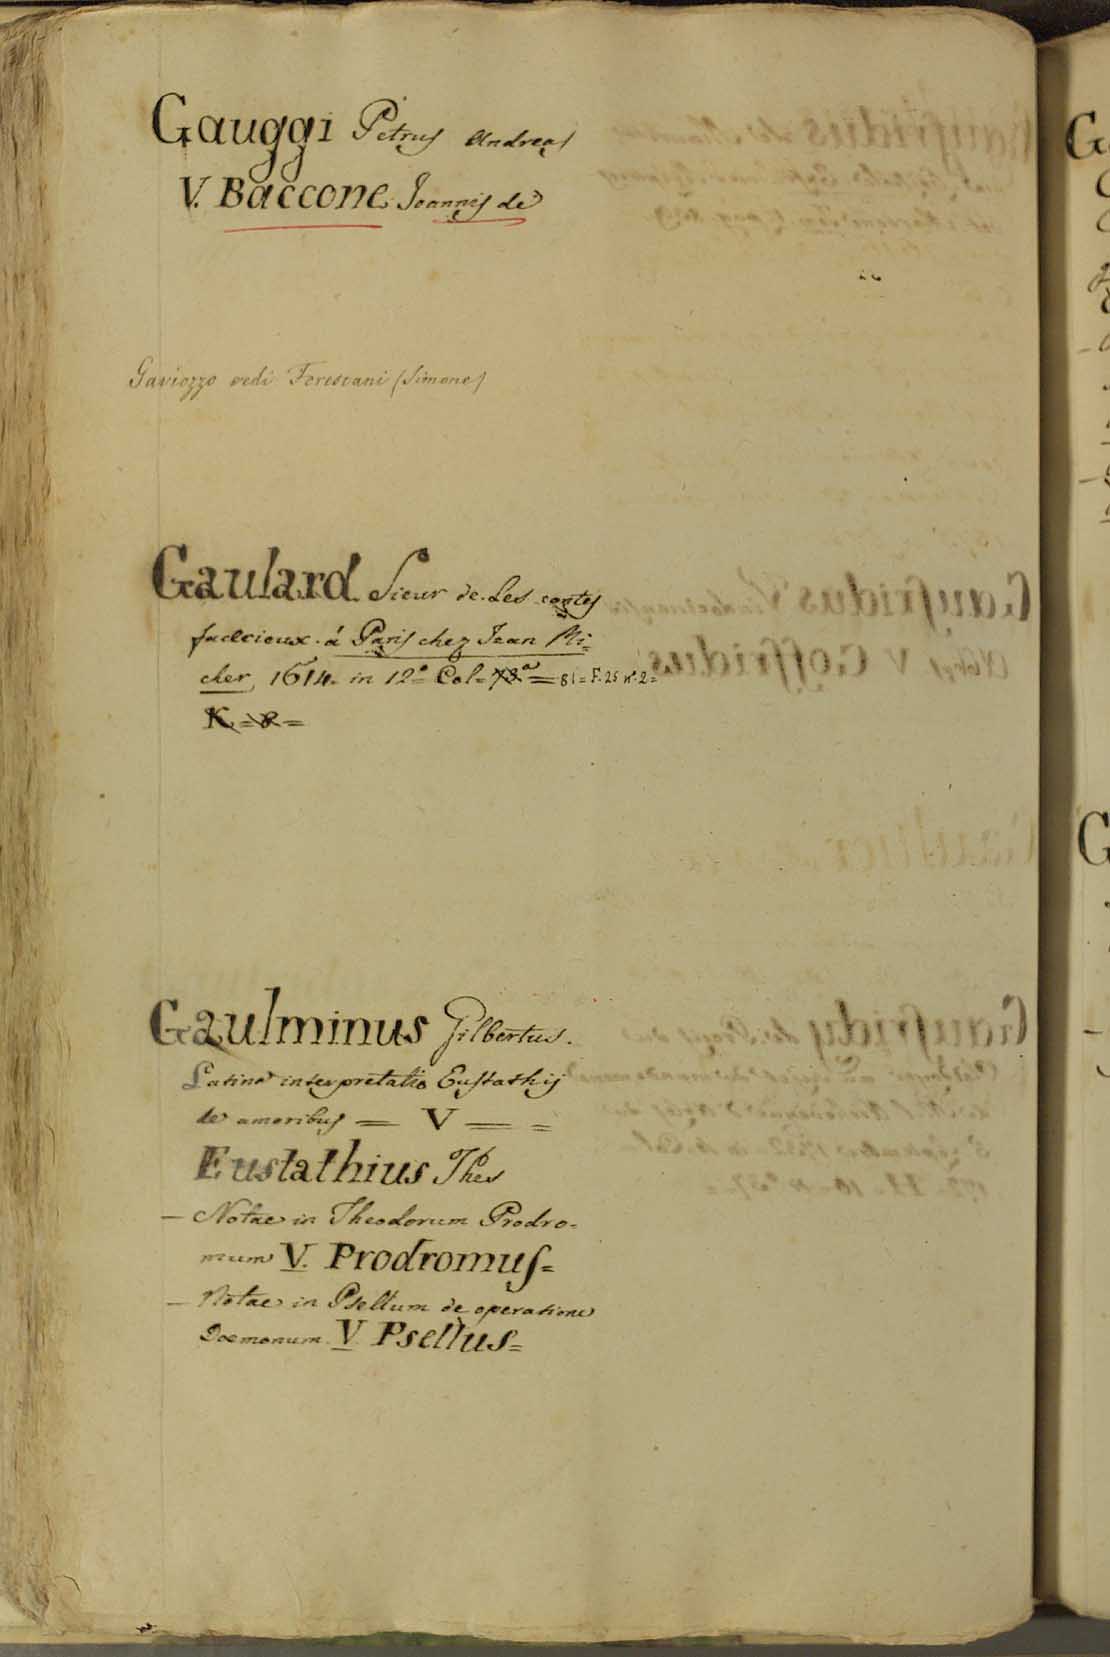 Gauggi Petrus Andreas
V. Baccone Joannis de
Gaviozzo vedi Forestani (Simone)
Gaulard Sieur de. Les contes
facecieux. á Paris chez Jean Ri=
cher, 1614. in 12° Col= 78ª = 81= F. 25 n°. 2=
K = 8 =
Gaulminus Gilbertus.
Latina interpretatio Eustathij
de amoribus = V = =
Eustathius Thes
— Notae in Theodorum Prodro=
mum V. Prodromus=
— Notae in Psellum de operatione
Daemonum. V Psellus=